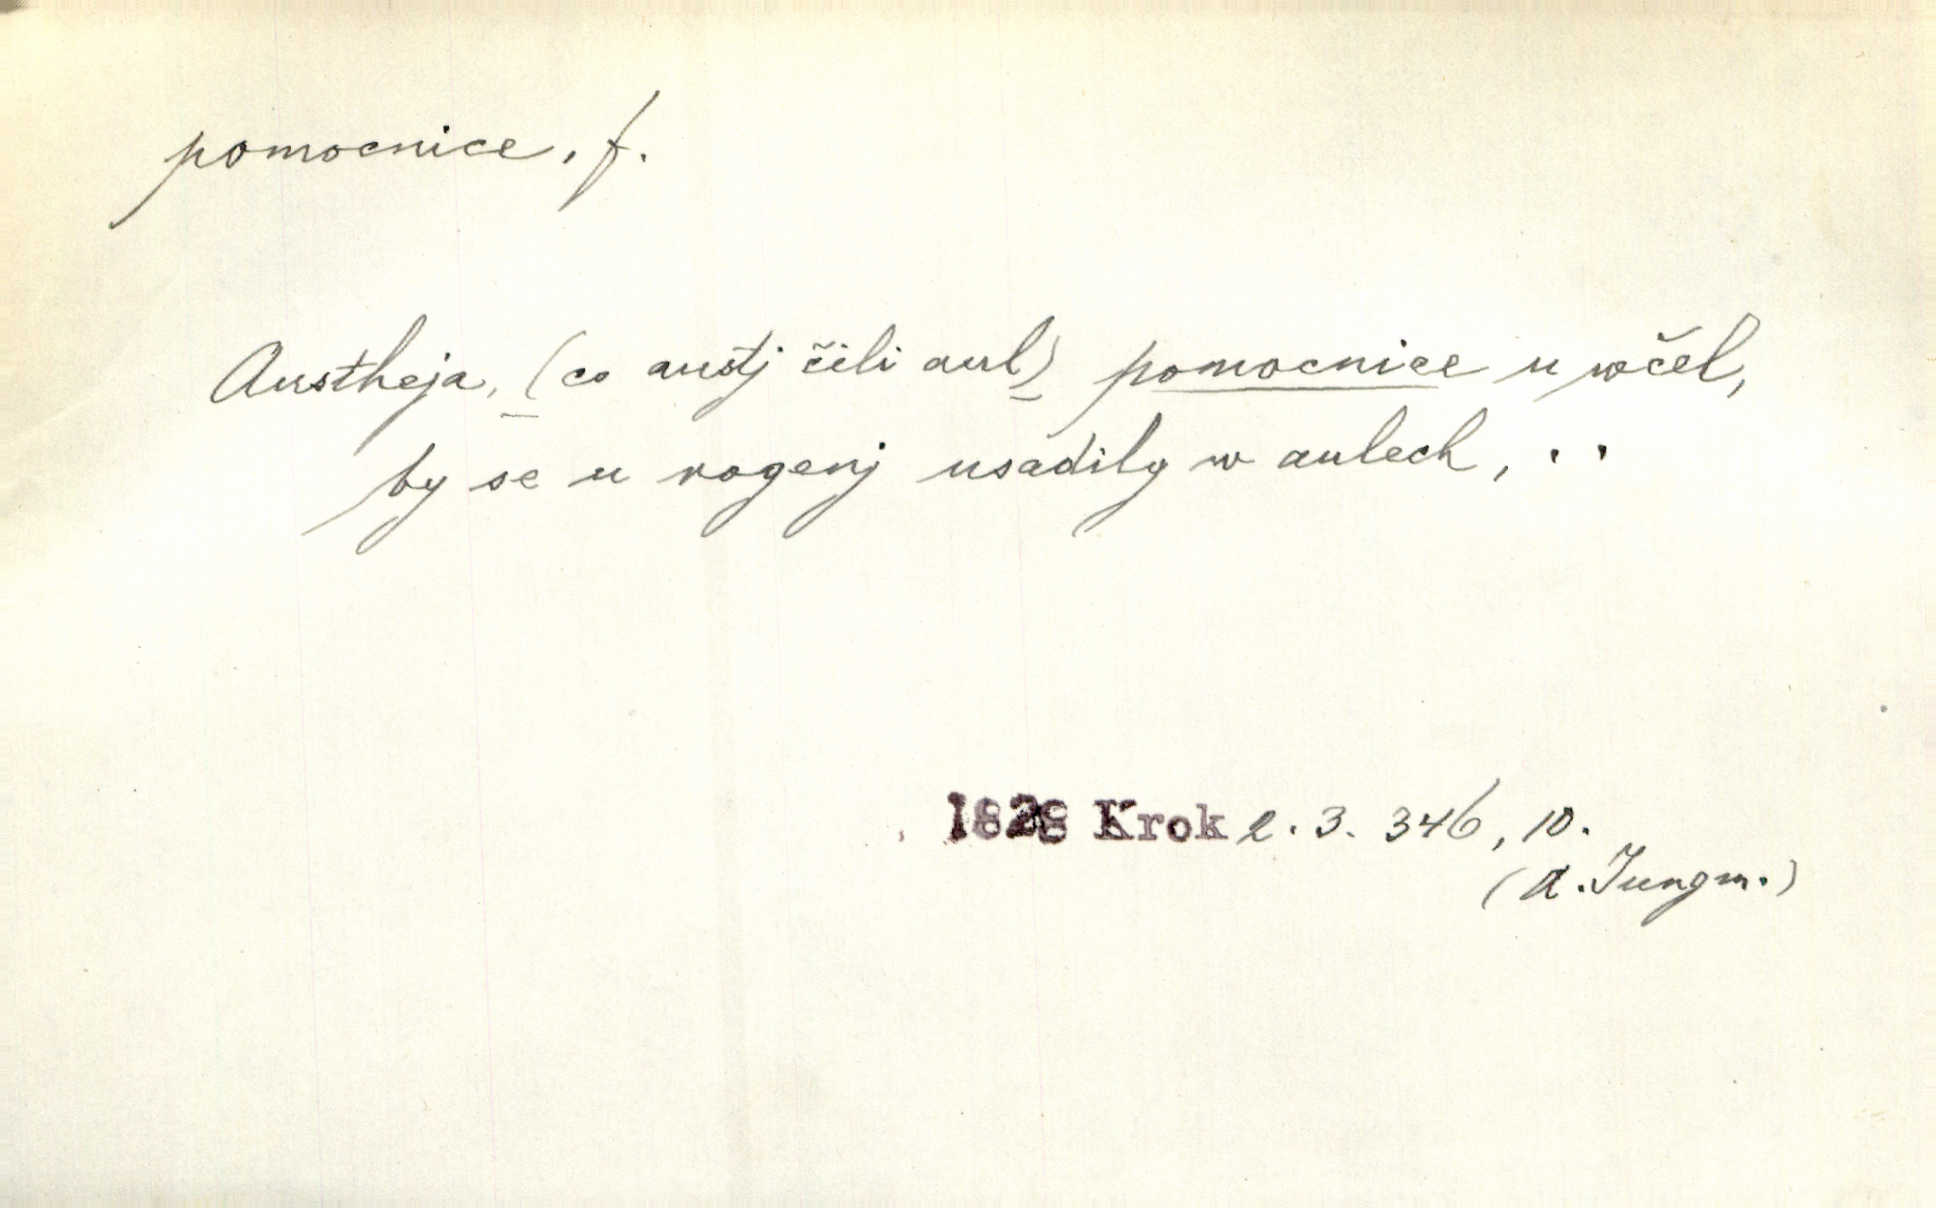 pomocnice, f.
Austheja, (co austj čili aul) pomocnice u wčel,
by se u rogenj usadily w aulech, . .
1828 Krok 2. 3. 346, 10.
(A. Jungm.)